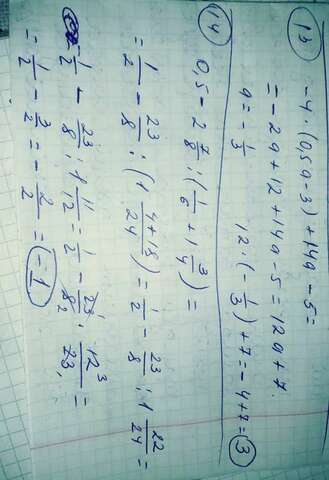 13) -4·(0,5a-3)+14a-5=
=-2a+12+14a-5=12a+7
a=-1/3 12·(-1/3)+7=-4+7=3
14)
0,5-2 7/8:(1/6+1 3/4)=
=1/2-23/8:(1 4+18/24)=1/2-23/8:1 22/24=
1/2-23/8:1 11/12=1/2-23/8·12/23=
=1/2-3/2=-2/2=-1